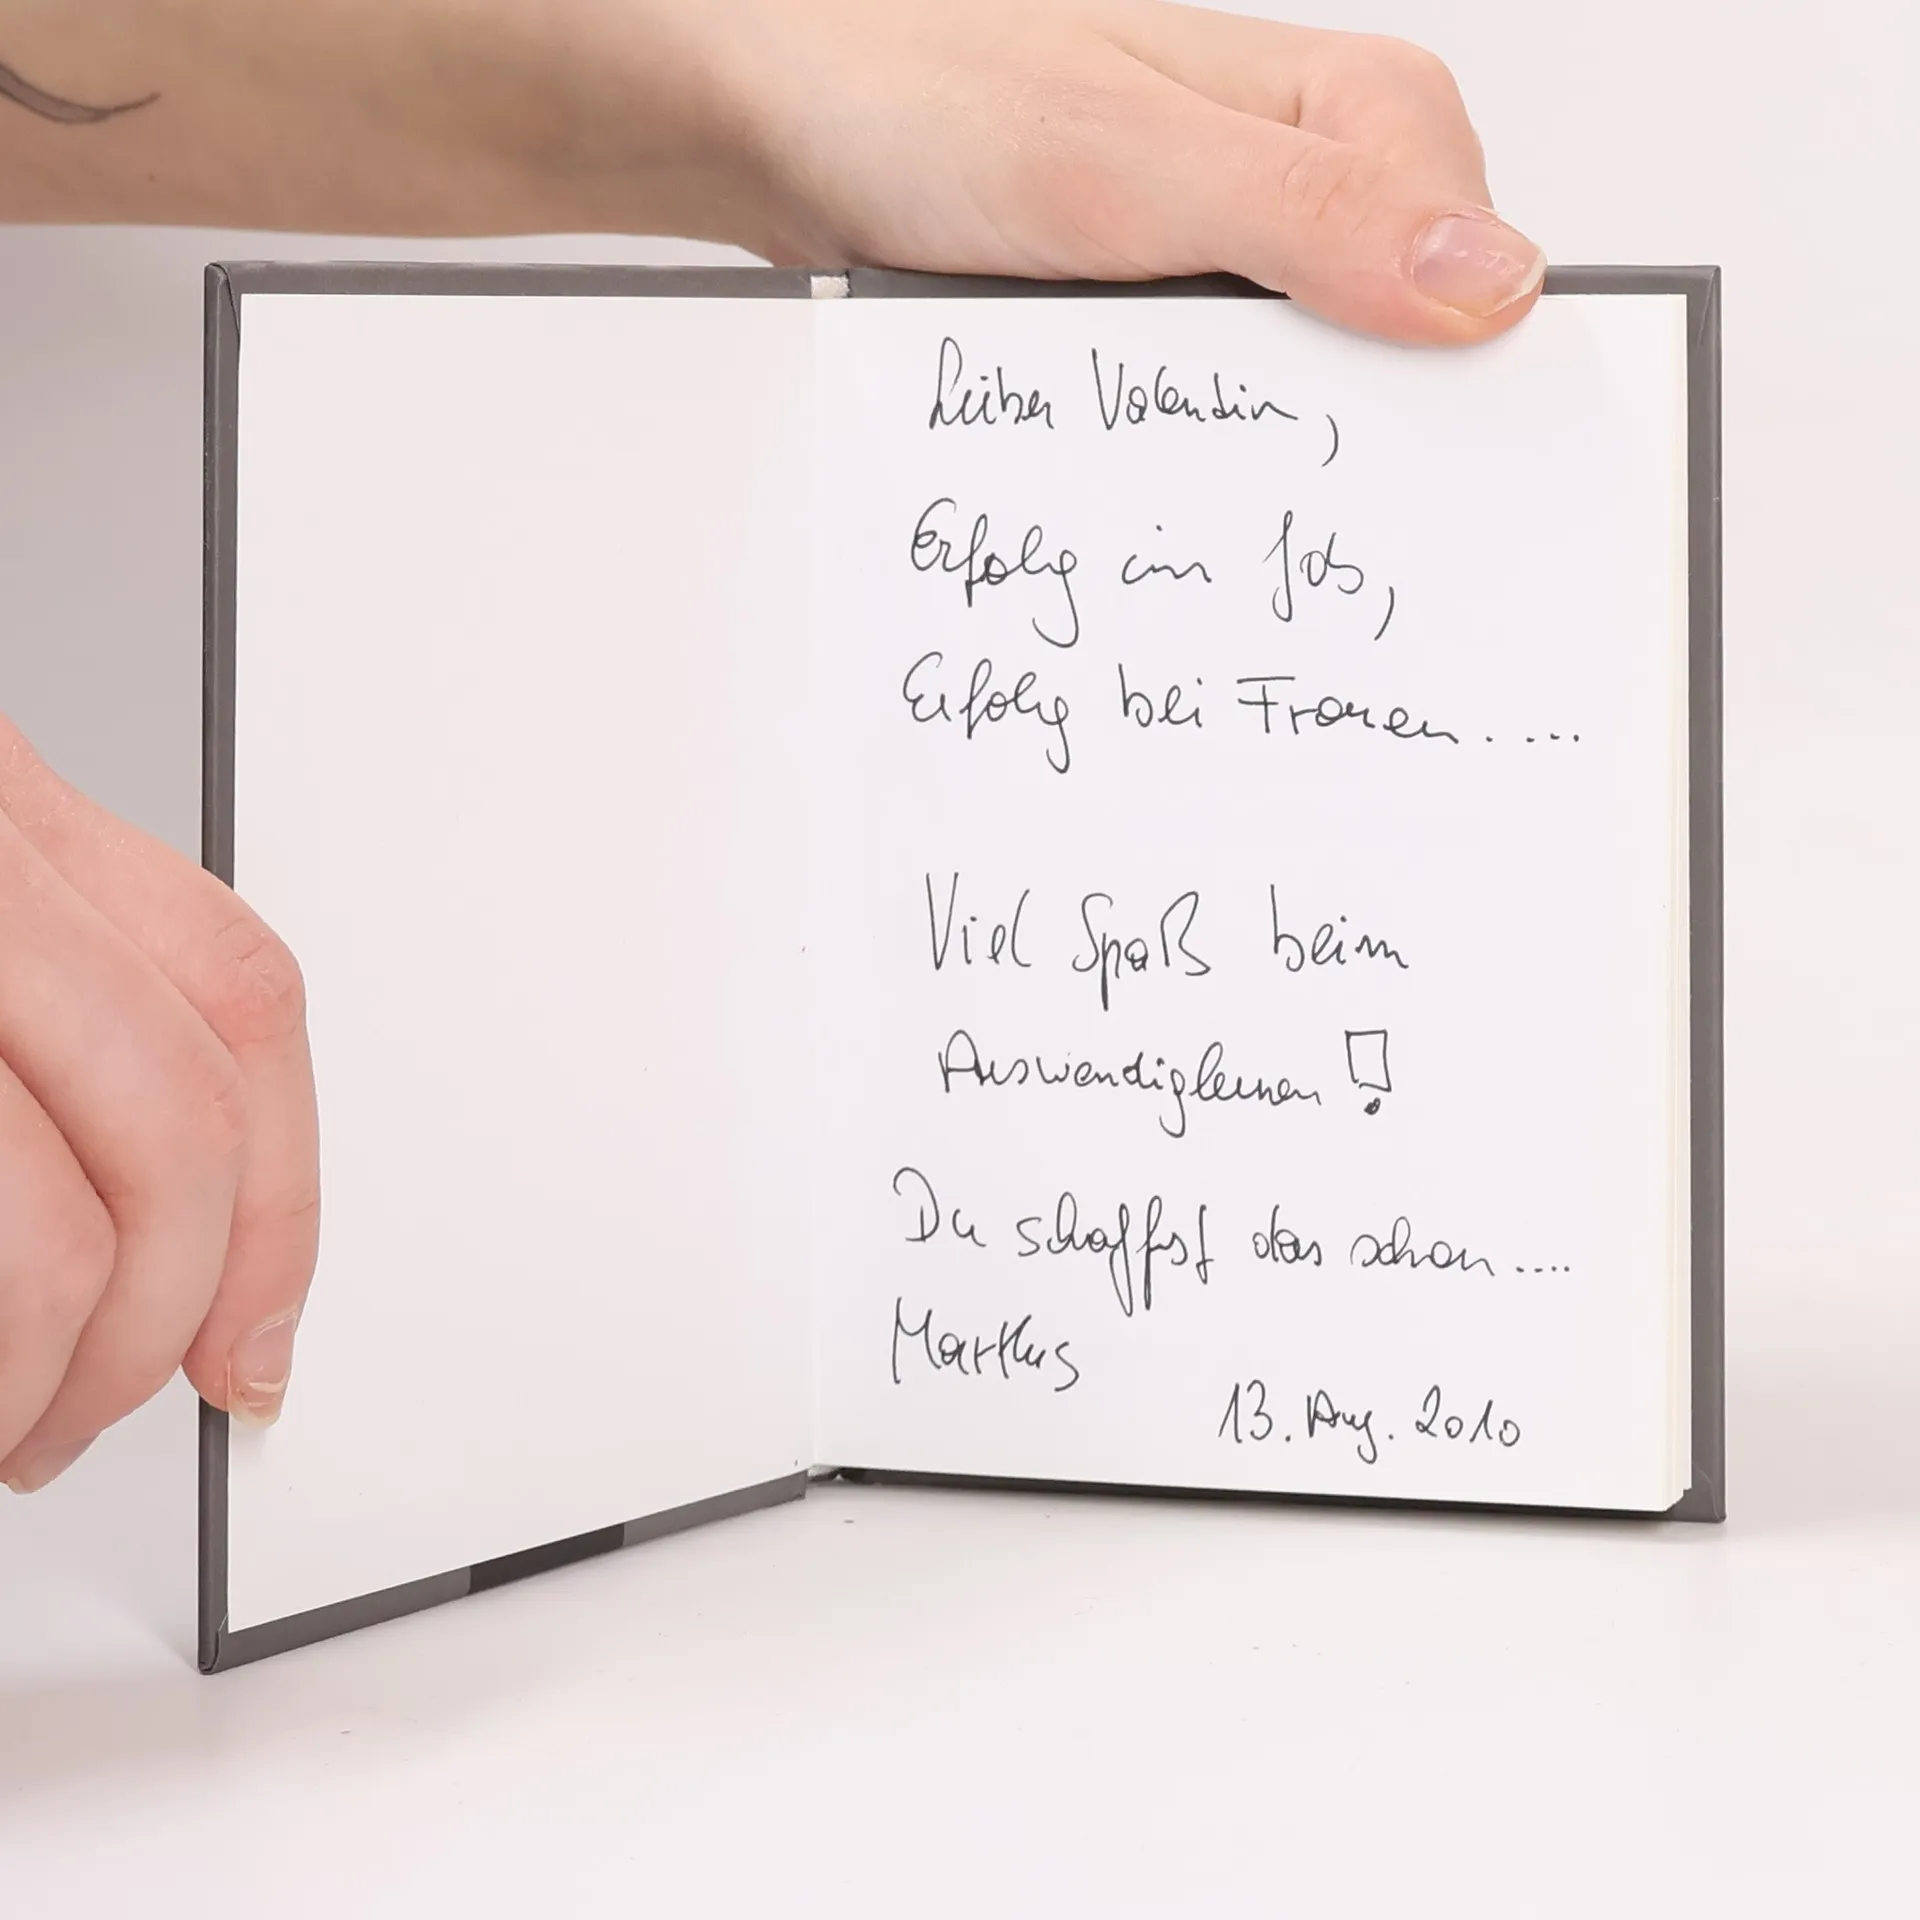 Lieber Valentin,
Erfolg im Job,
Erfolg bei Frauen.....
Viel Spaß beim
Auswendiglernen!
Du schaffst das schon....
Markus
13. Aug. 2010